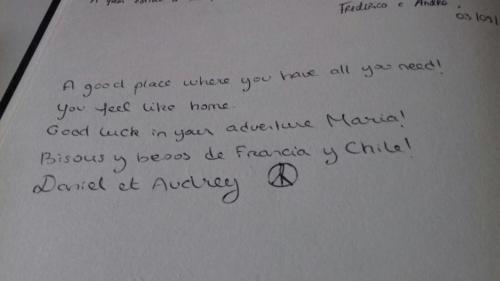 Frederico e Andrea.
03/09/
A good place where you have all you need!
You feel like home.
Good luck in your adventure Maria!
Bisous y besos de Francia y Chile!
Daniel et Audrey